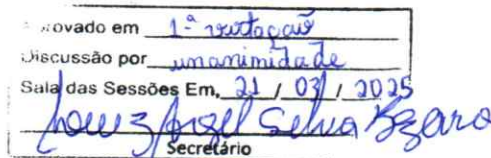 rovado em 1ª votação
Discussão por unanimidade
Sala das Sessões Em, 21 / 03 / 2025
Secretário